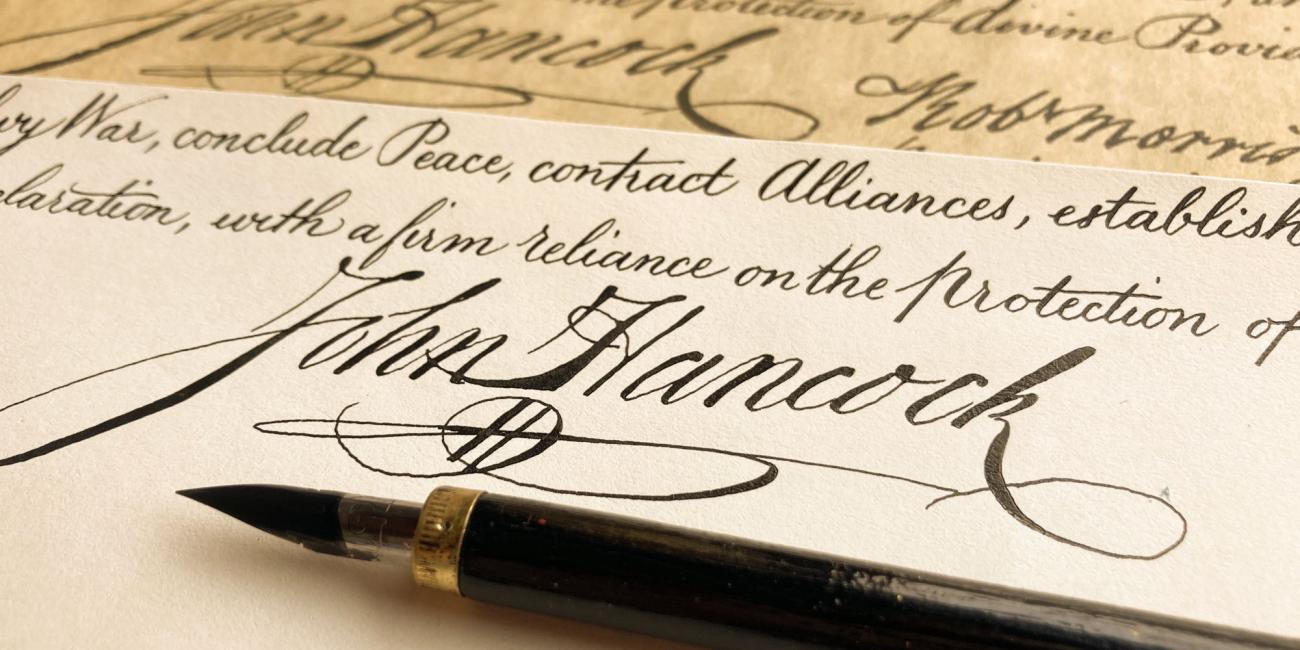 protection of divine Provi
John Hancock
Robt Morris
War, conclude Peace, contract Alliances, establish
claration, with a firm reliance on the protection of
John Hancock